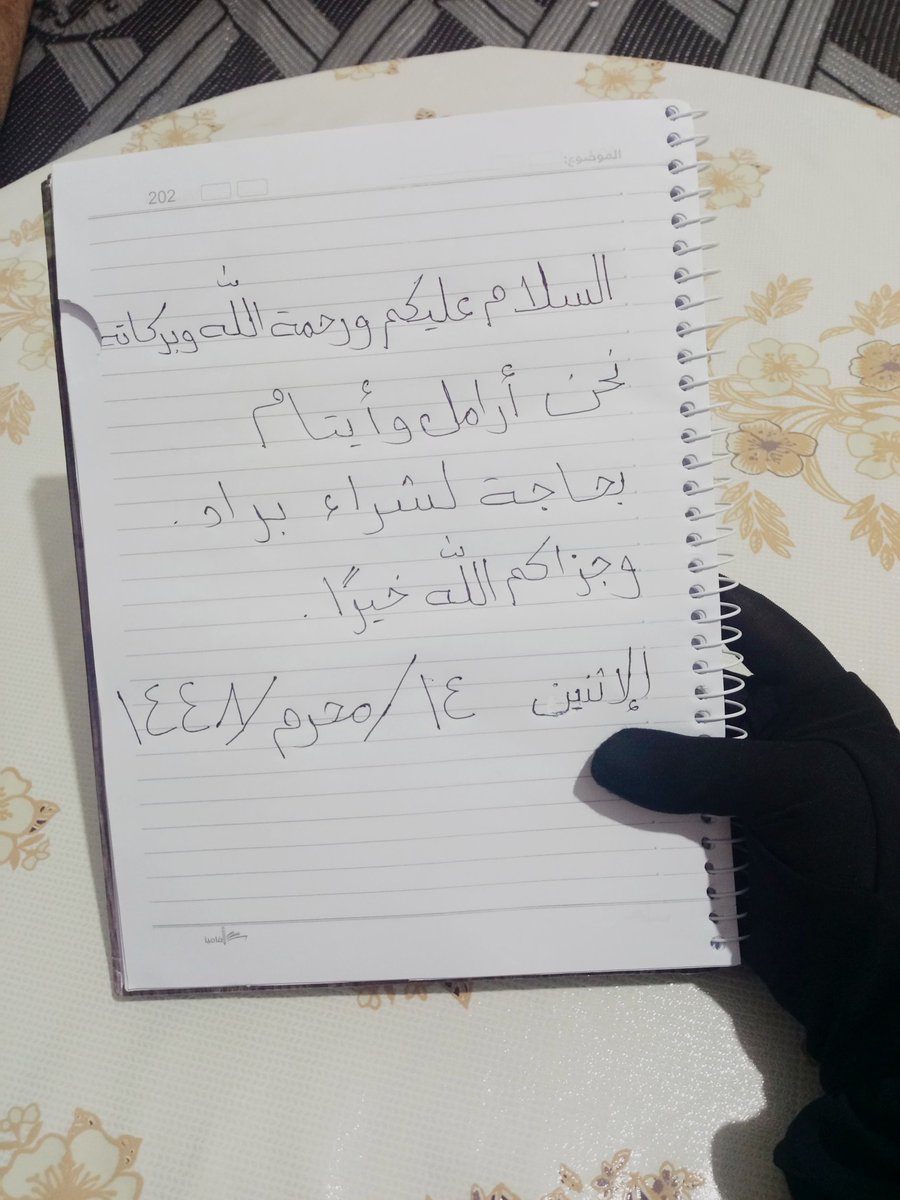 الموضوع:
202
السلام عليكم ورحمة الله وبركاته
نحن أرامل وأيتام
بحاجة لشراء براد.
وجزاكم الله خيرًا.
الإثنين ١٤/محرم/١٤٤٨